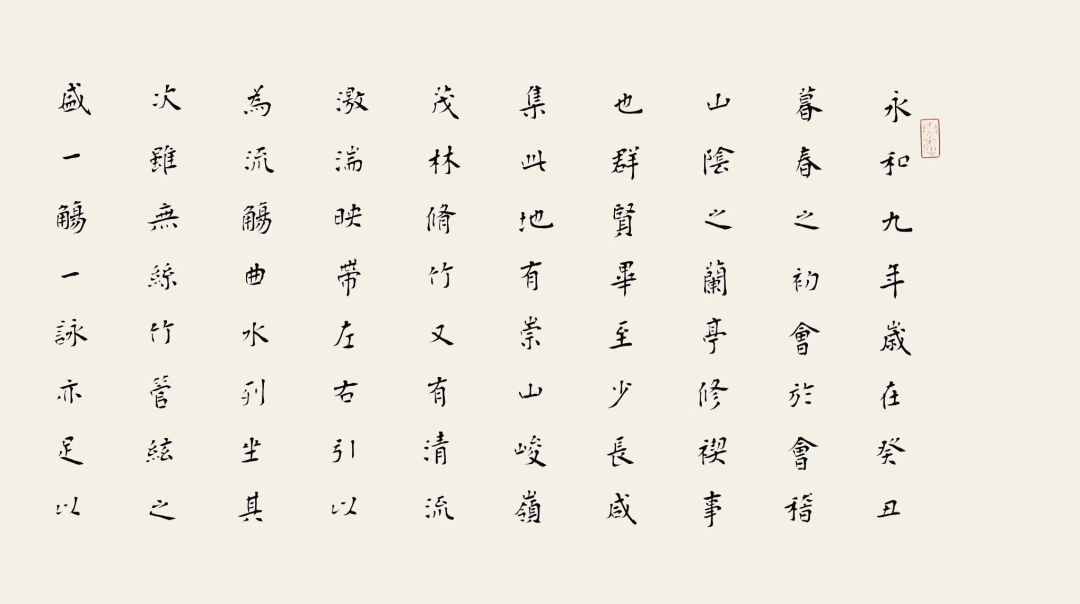 永和九年歲在癸丑
暮春之初會於會稽
山陰之蘭亭修禊事
也群賢畢至少長咸
集此地有崇山峻嶺
茂林脩竹又有清流
激湍映带左右引以
為流觴曲水列坐其
次雖無絲竹管絃之
盛一觴一詠亦足以